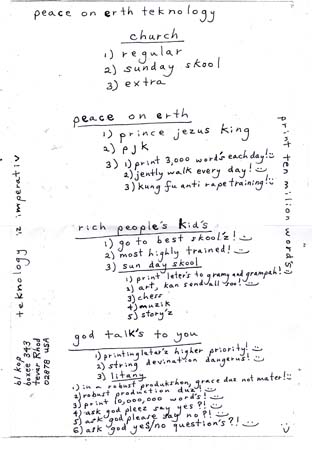 peace on erth teknology
church
1) regular
2) sunday skool
3) extra
peace on erth
1) prince jezus king
2) pjk
3) 1) print 3,000 word's each day!
2) jently walk every day!
3) kung fu anti rape training!
rich people's kid's
1) go to best skool'z!
2) most highly trained!
3) sun day skool
1) print leter's to gramy and grampah!
2) art, kan send all too!
3) chess
4) muzik
5) story'z
god talk's to you
1) printing leter'z higher priority!
2) string devination dangerus!
3) litany
1) in a robust produkshen, grace duz not mater!
2) robust production duz!
3) print 10,000,000 word's!
4) ask god pleez say yes?!
5) ask god please say no?!
6) ask god yes/no question's?!
teknology iz imperativ
bl kro
boxeo 343
tever Rhod
02878 USA
print ten milion words